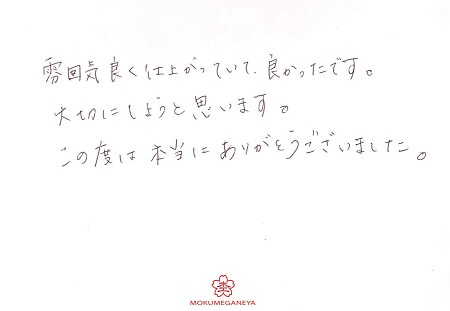 雰囲気良く仕上がっていて、良かったです。
大切にしようと思います。
この度は本当にありがとうございました。
MOKUMEGANEYA